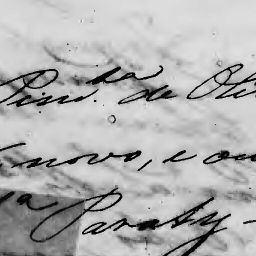 Pind.da de Oli
novo, e ou
Paraty-